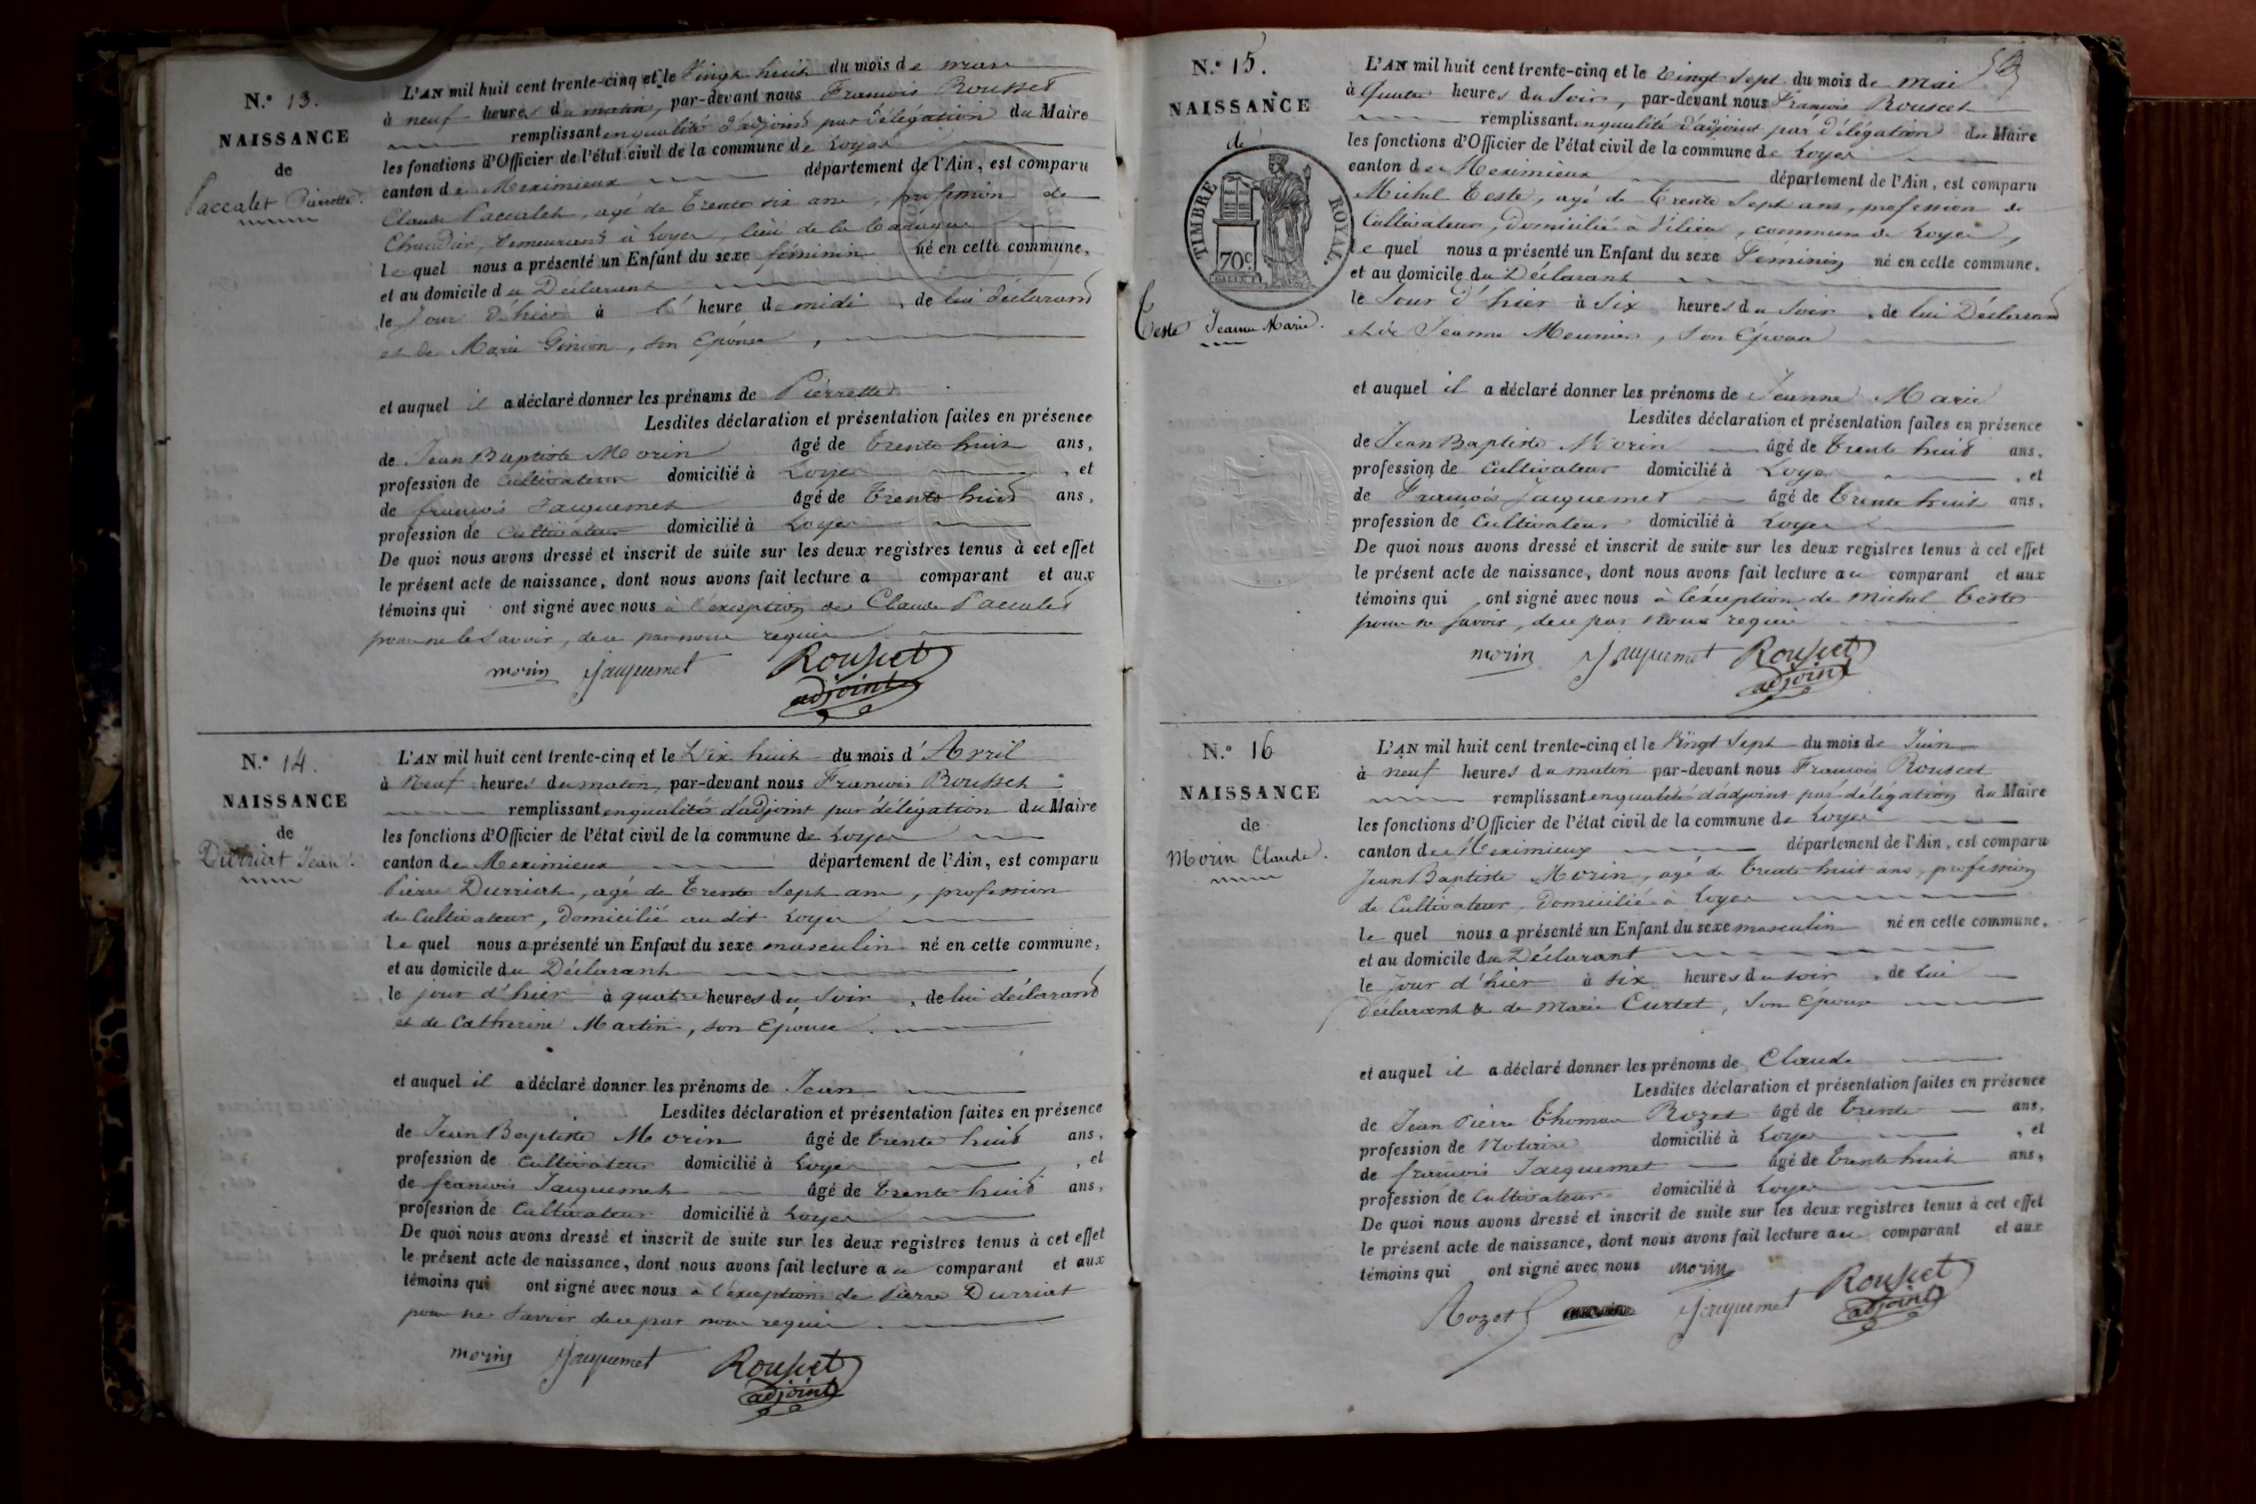 N.° 13.
NAISSANCE
de
Paccalet Pierrette.
L'AN mil huit cent trente-cinq et le Vingt huit du mois de mars
à neuf heures du matin, par-devant nous François Rousset
remplissant en qualité d'adjoint par délégation du Maire
les fonctions d'Officier de l'état civil de la commune de Loyes
canton de Meximieux département de l'Ain, est comparu
Claude Paccalet, agé de trente six ans, profession de
demeurant à Loyes, lieu de la
le quel nous a présenté un Enfant du sexe féminin né en cette commune,
et au domicile du Déclarant
le Jour d'hier à l' heure de midi, de lui déclarant
et de Marie Ginion, son Epouse,
et auquel il a déclaré donner les prénoms de Pierrette
Lesdites déclaration et présentation faites en présence
de Jean Baptiste Morin âgé de trente huit ans,
profession de Cultivateur domicilié à Loyes, et
de françois Jacquemet âgé de trente huit ans,
profession de Cultivateur domicilié à Loyes
De quoi nous avons dressé et inscrit de suite sur les deux registres tenus à cet effet
le présent acte de naissance, dont nous avons fait lecture a comparant et aux
témoins qui ont signé avec nous à l'exception de Claude Paccalet
pour ne le savoir, de ce par nous requis
morin Jacquemet Rousset
adjoint
N.° 14.
NAISSANCE
de
Durriat Jean.
L'AN mil huit cent trente-cinq et le Dix huit du mois d'Avril
à Neuf heures du matin, par-devant nous François Rousset
remplissant en qualité d'adjoint par délégation du Maire
les fonctions d'Officier de l'état civil de la commune de Loyes
canton de Meximieux département de l'Ain, est comparu
Pierre Durriat, agé de trente sept ans, profession
de Cultivateur, domicilié au dit Loyes
le quel nous a présenté un Enfant du sexe masculin né en cette commune,
et au domicile du Déclarant
le jour d'hier à quatre heures du Soir, de lui déclarant
et de Catherine Martin, son Epouse.
et auquel il a déclaré donner les prénoms de Jean
Lesdites déclaration et présentation faites en présence
de Jean Baptiste Morin âgé de trente huit ans,
profession de Cultivateur domicilié à Loyes, et
de françois Jacquemet âgé de trente huit ans,
profession de Cultivateur domicilié à Loyes
De quoi nous avons dressé et inscrit de suite sur les deux registres tenus à cet effet
le présent acte de naissance, dont nous avons fait lecture au comparant et aux
témoins qui ont signé avec nous à l'exception de Pierre Durriat
pour ne savoir de ce par nous requis.
morin Jacquemet Rousset
adjoint
N.° 15.
NAISSANCE
de
TIMBRE ROYAL.
70c
Teste Jeanne Marie.
L'AN mil huit cent trente-cinq et le Vingt Sept du mois de Mai
à Quatre heures du Soir, par-devant nous François Rousset
remplissant en qualité d'adjoint par délégation du Maire
les fonctions d'Officier de l'état civil de la commune de Loyes
canton de Meximieux département de l'Ain, est comparu
Michel Teste, agé de Trente Sept ans, profession de
Cultivateur, domicilié à Vilieu, commune de Loyes,
le quel nous a présenté un Enfant du sexe Féminin né en cette commune,
et au domicile du Déclarant
le Jour d'hier à Six heures du Soir, de lui Déclarant
et de Jeanne Meunier, Son Epouse
et auquel il a déclaré donner les prénoms de Jeanne Marie
Lesdites déclaration et présentation faites en présence
de Jean Baptiste Morin âgé de trente huit ans,
profession de Cultivateur domicilié à Loyes, et
de François Jacquemet âgé de trente huit ans,
profession de Cultivateur domicilié à Loyes
De quoi nous avons dressé et inscrit de suite sur les deux registres tenus à cet effet
le présent acte de naissance, dont nous avons fait lecture au comparant et aux
témoins qui ont signé avec nous à l'exception de Michel Teste
pour ne savoir, de ce par Nous requis
morin Jacquemet Rousset
adjoint
N.° 16
NAISSANCE
de
Morin Claude.
L'AN mil huit cent trente-cinq et le Vingt Sept du mois de Juin
à neuf heures du matin par-devant nous François Rousset
remplissant en qualité d'adjoint par délégation du Maire
les fonctions d'Officier de l'état civil de la commune de Loyes
canton de Meximieux département de l'Ain, est comparu
Jean Baptiste Morin, agé de trente huit ans, profession
de Cultivateur, domicilié à Loyes
le quel nous a présenté un Enfant du sexe masculin né en cette commune,
et au domicile du Déclarant
le jour d'hier à six heures du soir, de lui
déclarant & de Marie Curtet, Son Epouse
et auquel il a déclaré donner les prénoms de Claude
Lesdites déclaration et présentation faites en présence
de Jean Pierre Thomas Rozet âgé de trente ans,
profession de Notaire domicilié à Loyes, et
de françois Jacquemet âgé de trente huit ans,
profession de Cultivateur domicilié à Loyes
De quoi nous avons dressé et inscrit de suite sur les deux registres tenus à cet effet
le présent acte de naissance, dont nous avons fait lecture au comparant et aux
témoins qui ont signé avec nous morin
Rozet Jacquemet Rousset
adjoint